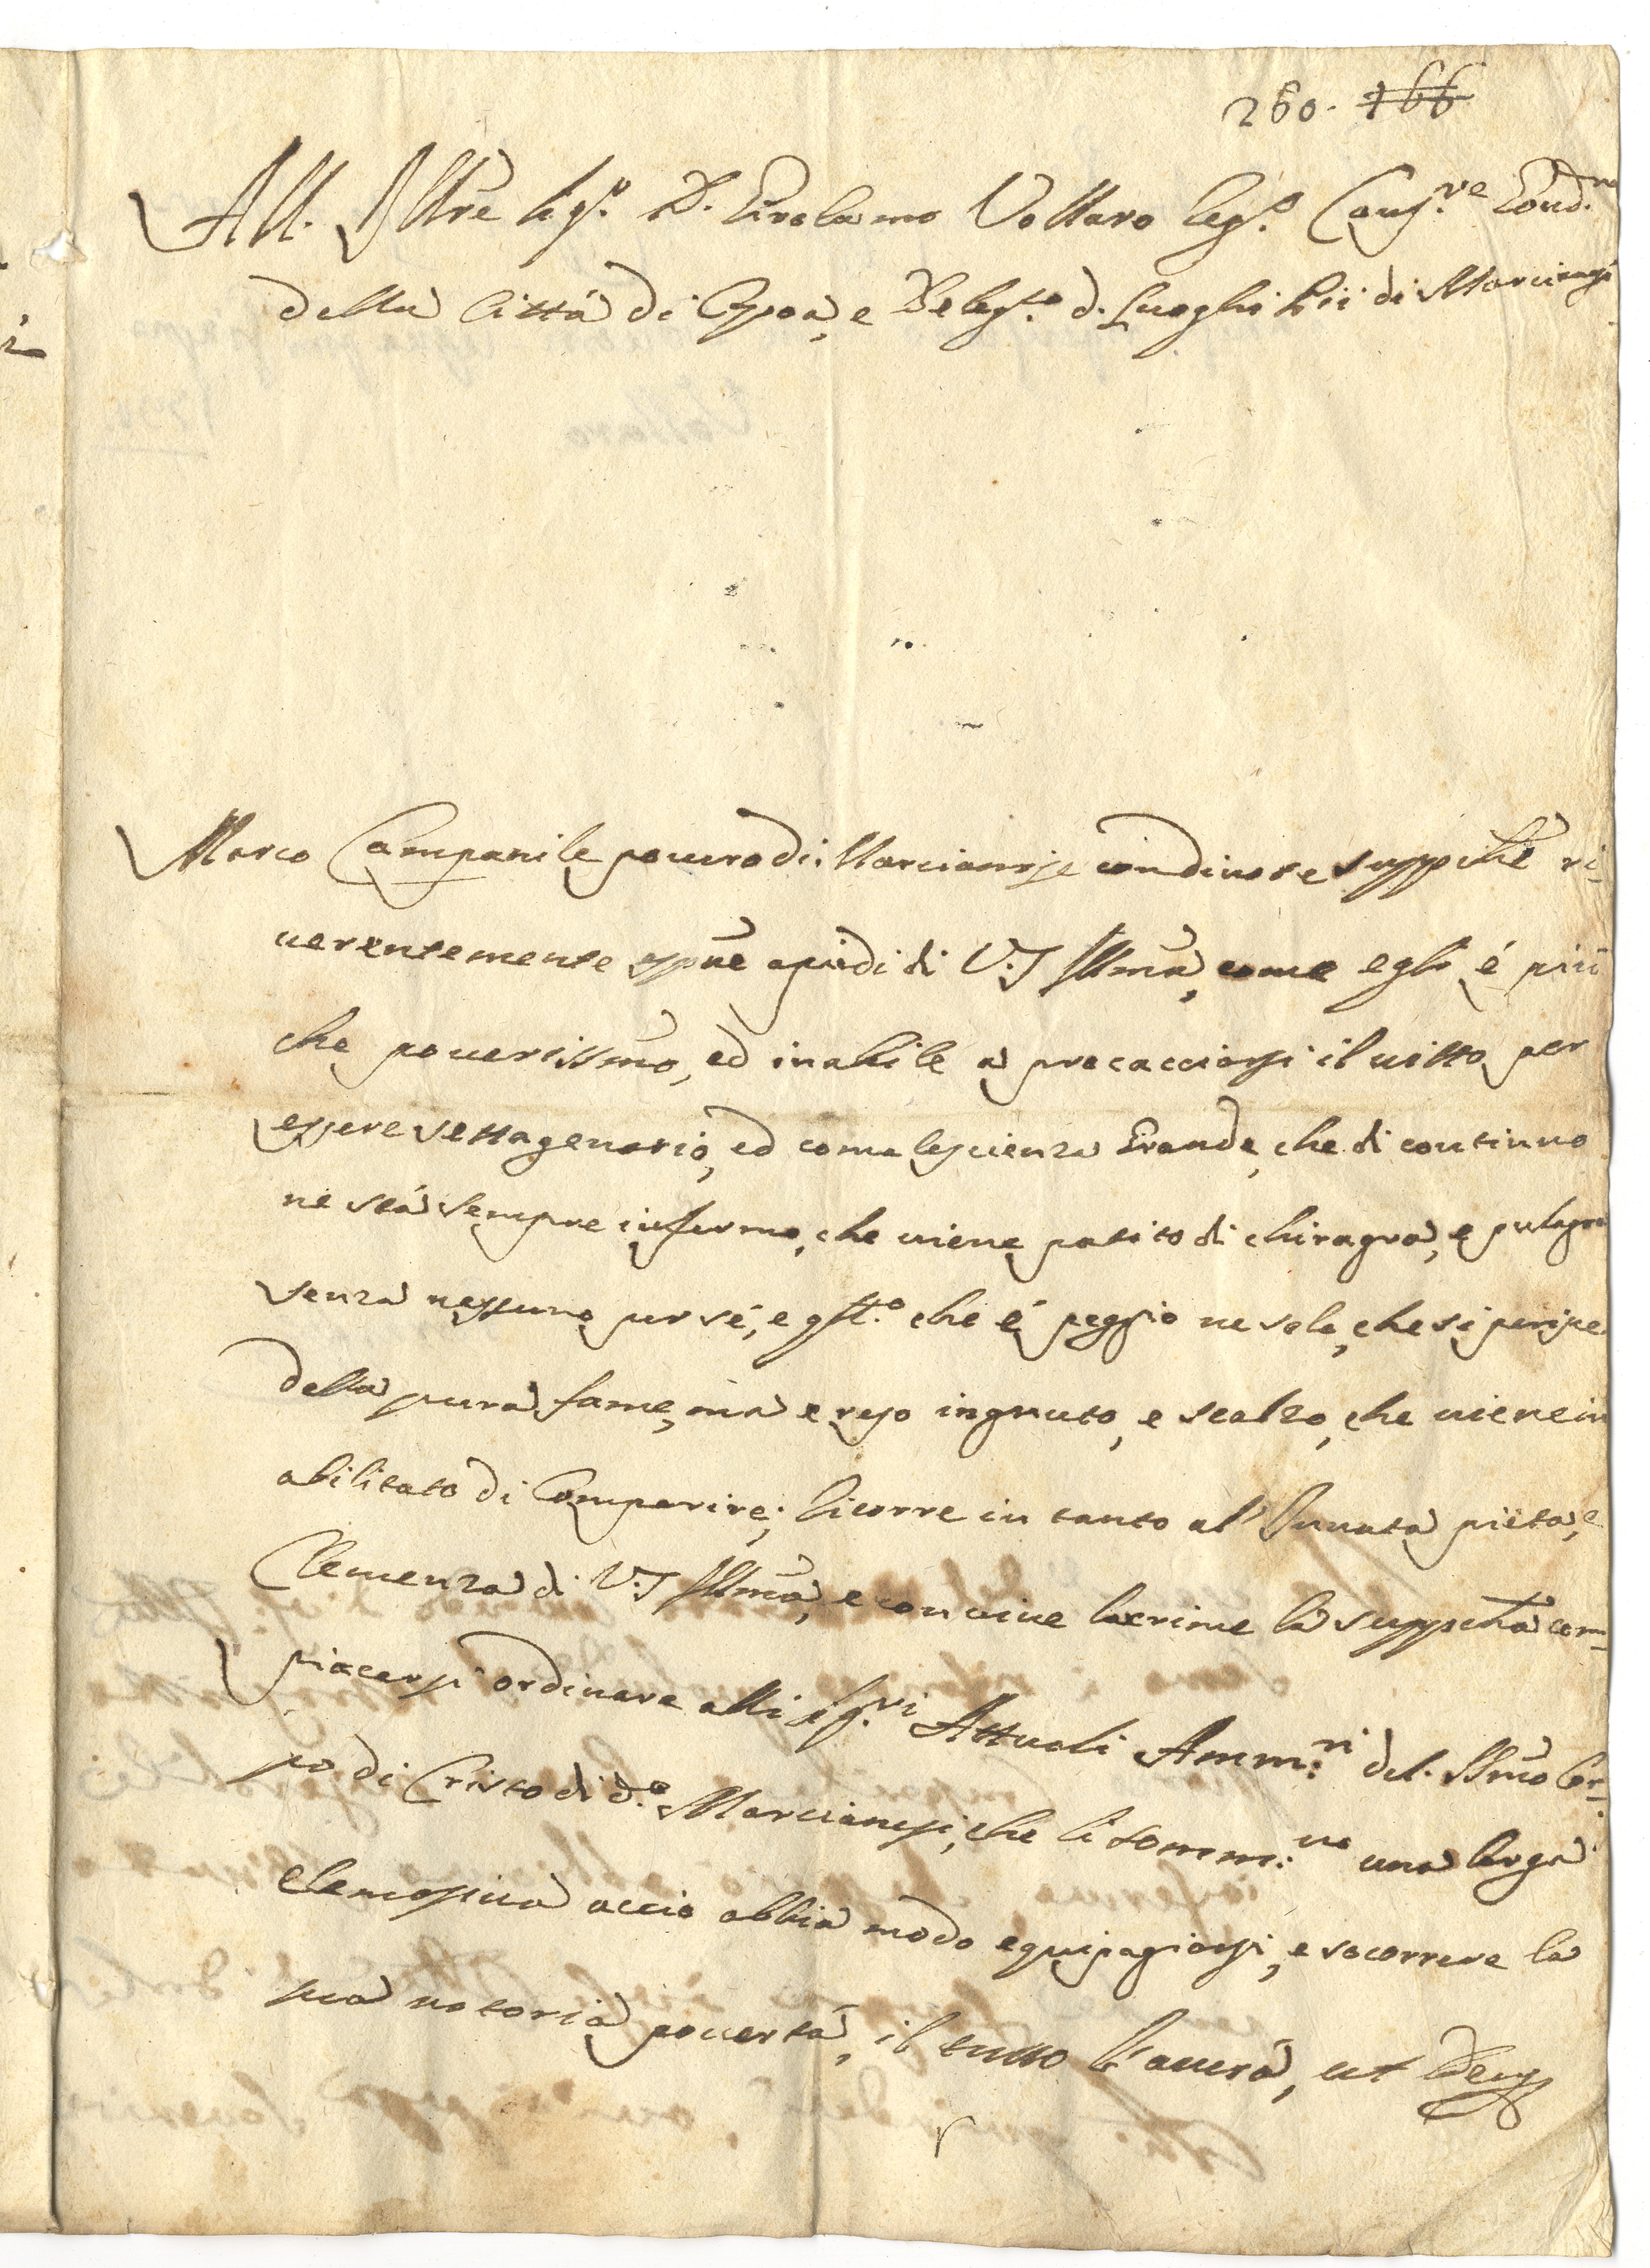 260. 166
All. Ill:re Sig.r D. Girolamo Vollaro Reg.o Cons.re Gov.re
della Città di Capoa, e Deleg.to d. Luoghi Pii di Marcianisi
Marco Campanile povero di Marcianise con divote suppliche ri=
verentemente espone a piedi di V. S. Ill.ma, come egli è più
che poverissimo, ed inabile a procacciarsi il vitto per
essere settagenario, ed convalescienza Grande, che di continuo
ne stà sempre infermo, che viene patito di chiragra, e pulagra
senza nessuno per sé, e q.sto che è peggio ne solo, che si perisce
della pura fame, ma e reso ingnuto, e scalzo, che viene in
abilitato di Comparire; Ricorre in tanto al' Innata pietà, e
Clemenza di V. S. Ill.ma, e con vive lacrime la supplica com=
piacersi ordinare alli Sig.ri Attuali Amm.ri del. SS.mo Cor=
po di Cristo di d.o Marcianisi, che li somm.no una larga
elemosina acciò abbia modo equipagiarsi, e socorrere la
sua notoria povertà, il tutto l'averà, ut Deus